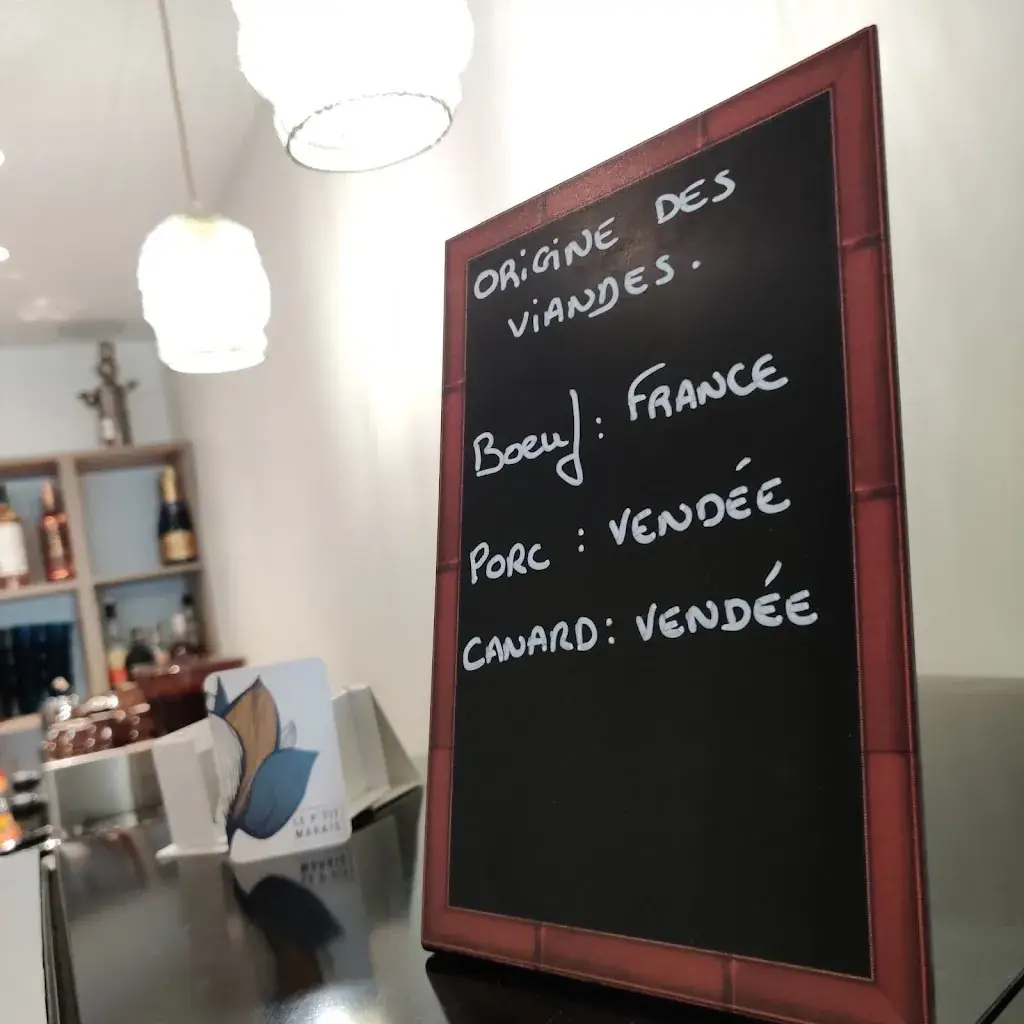 ORIGINE DES
VIANDES.
Boeuf : FRANCE
PORC : VENDÉE
CANARD : VENDÉE
LE P'TIT
MARAIS